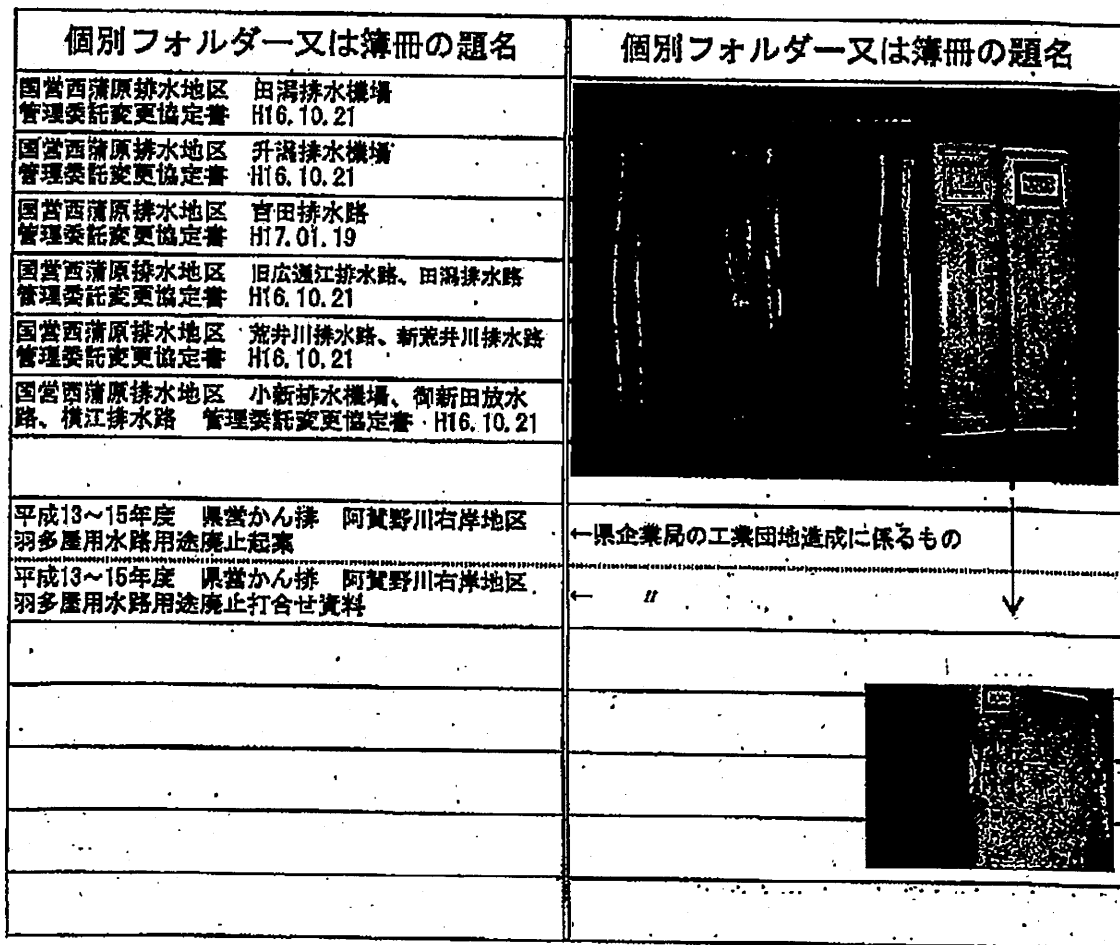 個別フォルダー又は簿冊の題名
国営西蒲原排水地区 田潟排水機場
管理委託変更協定書 H16.10.21
国営西蒲原排水地区 升潟排水機場
管理委託変更協定書 H16.10.21
国営西蒲原排水地区 吉田排水路
管理委託変更協定書 H17.01.19
国営西蒲原排水地区 旧広通江排水路、田潟排水路
管理委託変更協定書 H16.10.21
国営西蒲原排水地区 荒井川排水路、新荒井川排水路
管理委託変更協定書 H16.10.21
国営西蒲原排水地区 小新排水機場、御新田放水
路、横江排水路 管理委託変更協定書 H16.10.21
平成13～15年度 県営かん排 阿賀野川右岸地区
羽多屋用水路用途廃止起案
平成13～15年度 県営かん排 阿賀野川右岸地区
羽多屋用水路用途廃止打合せ資料
個別フォルダー又は簿冊の題名
←県企業局の工業団地造成に係るもの
← 〃